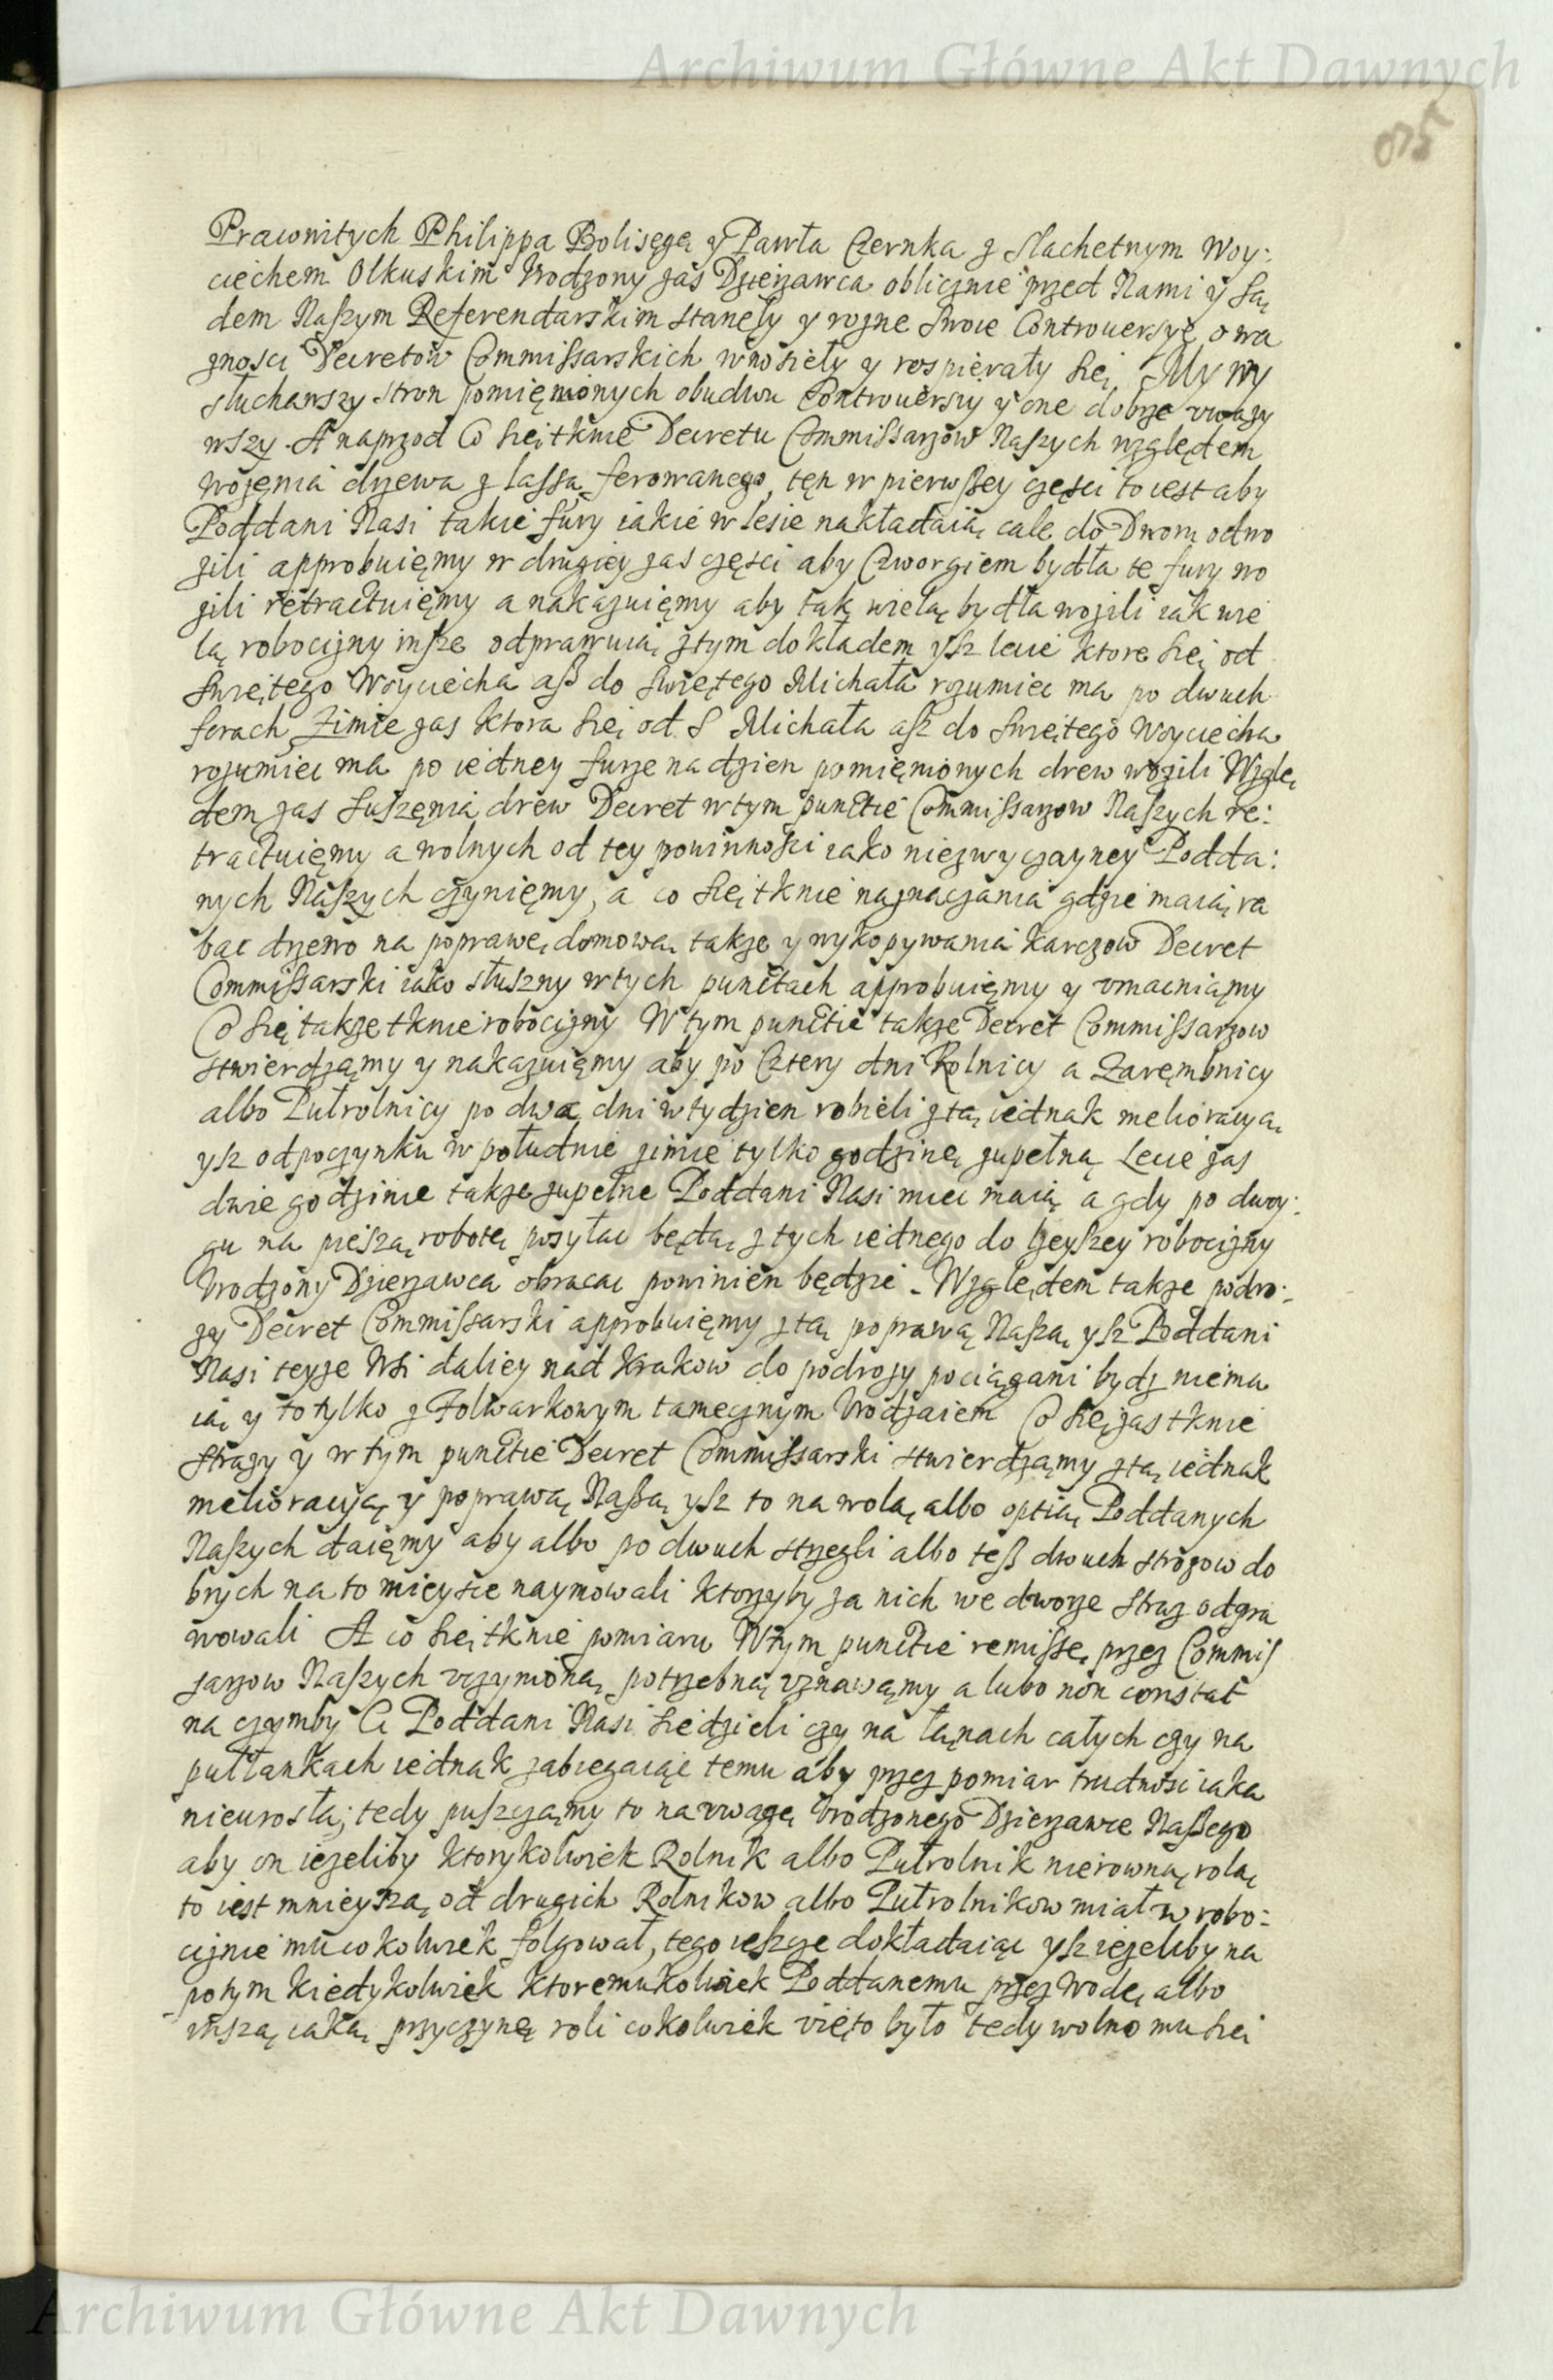 Archiwum Główne Akt Dawnych
Prawowitych Philippa Bolisęgę y Pawła Czernka z Slachetnym Woy:
ciechem Olkuskim Vrodzony zas Dzierzawca oblicznie przed Nami y Są
dem Naszym Referendarskim stanęły y rozne swoie Controuersye o wa
znosci Decretow Commissarskich wnosiely y rospieraly się. My wy
słuchawszy stron pomięnionych obudwu Controuersiy y one dobrze vwazy
wszy. A naprzod Co się tknie Decretu Commissarzow Naszych względem
wozęnia drzewa z lassa ferowanego, tęn w pierwszey częsci to iest aby
Poddani Nasi takie fury iakie w lesie nakładaią cale do Dworu odwo
zili approbuięmy w drugiey zas częsci aby Czworgiem bydła te fury wo
zili retractuięmy a nakazuięmy aby tak wielą bydła wozili iak wie
lą robocizny insze odprawuią z tym dokładem ysz lecie ktore się od
Swiętego Woyciecha asz do Swiętego Michała rozumiec ma po dwuch
forach Zimie zas ktora się od S Michała asz do Swiętego Woyciecha
rozumiec ma po iedney furze na dzien pomięnionych drew wozili Wzglę
dem zas suszęnia drew Decret w tym punctie Commissarzow Naszych re:
tractuięmy a wolnych od tey powinnosci iako niezwyczayney Podda:
nych Naszych czynięmy, a co się tknie naznaczania gdzie maią ra
bac drzewo na poprawę domową takze y wykopywania karczow Decret
Commissarski iako słuszny w tych punctach approbuięmy y vmacniamy
Co się takze tknie robocizny W tym punctie takze Decret Commissarzow
stwierdzamy y nakazuięmy aby po Cztery dni Rolnicy a Zarębnicy
albo Pułrolnicy po dwa dni w tydzien robieli z tą iednak melioracyą
ysz odpoczynku w południe zimie tylko godzinę zupełną Lecie zas
dwie godzinie takze zupełne Poddani Nasi miec maią a gdy po dwoy:
gu na pieszą robotę posyłac będą z tych iednego do lzeyszey robocizny
Vrodzony Dzierzawca obracac powinien będzie. Względem takze podro:
zy Decret Commissarski approbuięmy z tą poprawą Naszą ysz Poddani
Nasi teyze Wsi daliey nad Krakow do podrozy pociągani bydz niema
ią y to tylko z Folwarkowym tamecznym Vrodzaiem Co się zas tknie
strazy y w tym punctie Decret Commissarski stwierdzamy z tą iednak
melioracyą y poprawą Naszą ysz to na wolą albo optią Poddanych
Naszych daięmy aby albo po dwuch strzegli albo tesz dwuch strozow do
brych na to mieysce naymowali ktorzyby za nich we dworze straz odpra
wowali A co się tknie pomiaru W tym punctie remissę przez Commis
sarzow Naszych vczynioną potrzebną vznawamy a lubo non constat
na czymby Ci Poddani Nasi siedzieli czy na łanach całych czy na
pułłankach iednak zabiegaiąc temu aby przez pomiar trudnosc iaka
nieurosła; tedy puszczamy to na vwagę Vrodzonego Dzierzawce Naszego
aby on iezeliby ktorykolwiek Rolnik albo Pułrolnik nierowną rolą
to iest mnieyszą od drugich Rolnikow albo Pułrolnikow miał w robo:
ciznie mu cokolwiek folgował, tego ieszcze dokładaiąc ysz iezeliby na
potym kiedykolwiek ktoremukolwiek Poddanemu przez Wodę albo
inszą iaką przyczynę roli cokolwiek vięto było tedy wolno mu się
Archiwum Główne Akt Dawnych